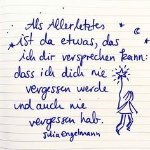 Als Allerletztes
ist da etwas, das
ich dir versprechen kann:
dass ich dich nie
vergessen werde
und auch nie
vergessen hab.
Julia Engelmann